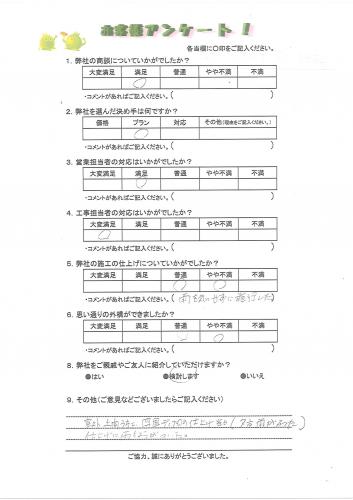 お客様アンケート！
各当欄に〇印をご記入ください。
1. 弊社の商談についていかがでしたか？
大変満足 満足 普通 やや不満 不満
・コメントがあればご記入ください。( )
2. 弊社を選んだ決め手は何ですか？
価格 プラン 対応 その他（理由をご記入ください。）
・コメントがあればご記入ください。( )
3. 営業担当者の対応はいかがでしたか？
大変満足 満足 普通 やや不満 不満
・コメントがあればご記入ください。( )
4. 工事担当者の対応はいかがでしたか？
大変満足 満足 普通 やや不満 不満
・コメントがあればご記入ください。( )
5. 弊社の施工の仕上げについていかがでしたか？
大変満足 満足 普通 やや不満 不満
・コメントがあればご記入ください。( )
6. 思い通りの外構ができましたか？
大変満足 満足 普通 やや不満 不満
・コメントがあればご記入ください。( )
8. 弊社をご親戚やご友人に紹介していただけますか？
●はい ●検討します ●いいえ
9. その他（ご意見などございましたらご記入ください）
ご協力、誠にありがとうございました。